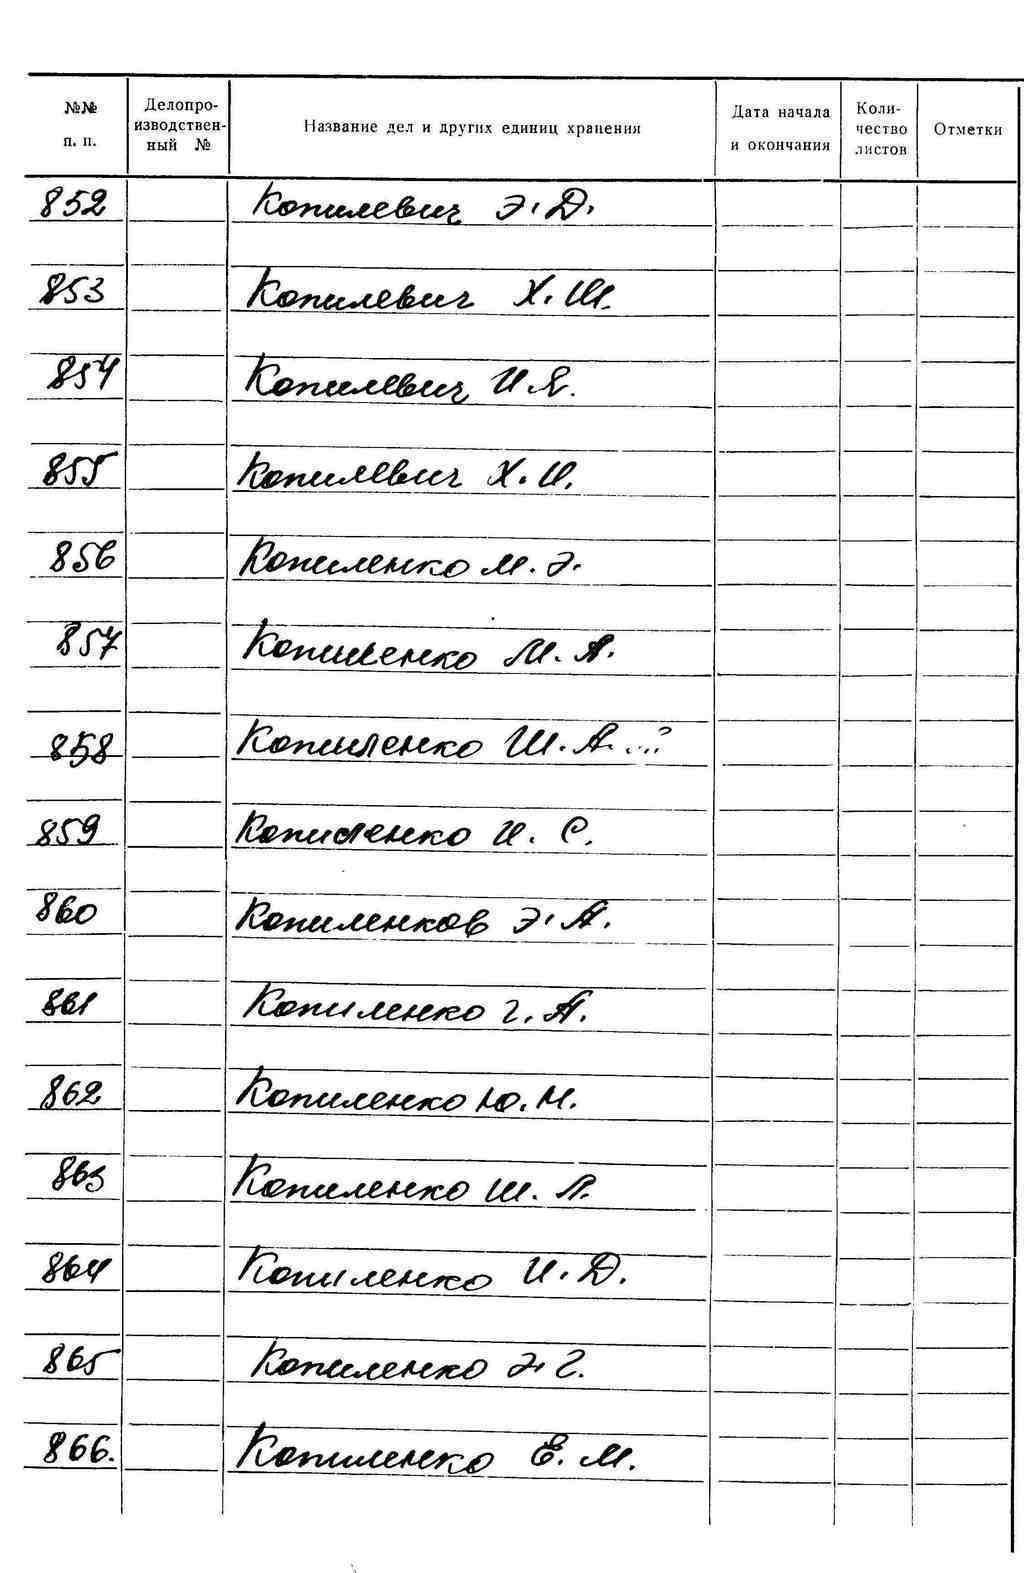 №№ п. п. Делопроизводственный № Название дел и других единиц хранения Дата начала и окончания Количество листов Отметки
852 Копилевич Э. Д.
853 Копилевич Х. Ш.
854 Копилевич И. Я.
855 Копилевич Х. И.
856 Копиленко М. Э.
857 Копиленко М. А.
858 Копиленко Ш. А.
859 Копиленко И. С.
860 Копиленков Э. А.
861 Копиленко Г. А.
862 Копиленко Ю. М.
863 Копиленко Ш. Л.
864 Копиленко И. Д.
865 Копиленко Э. Г.
866. Копиленко Е. М.